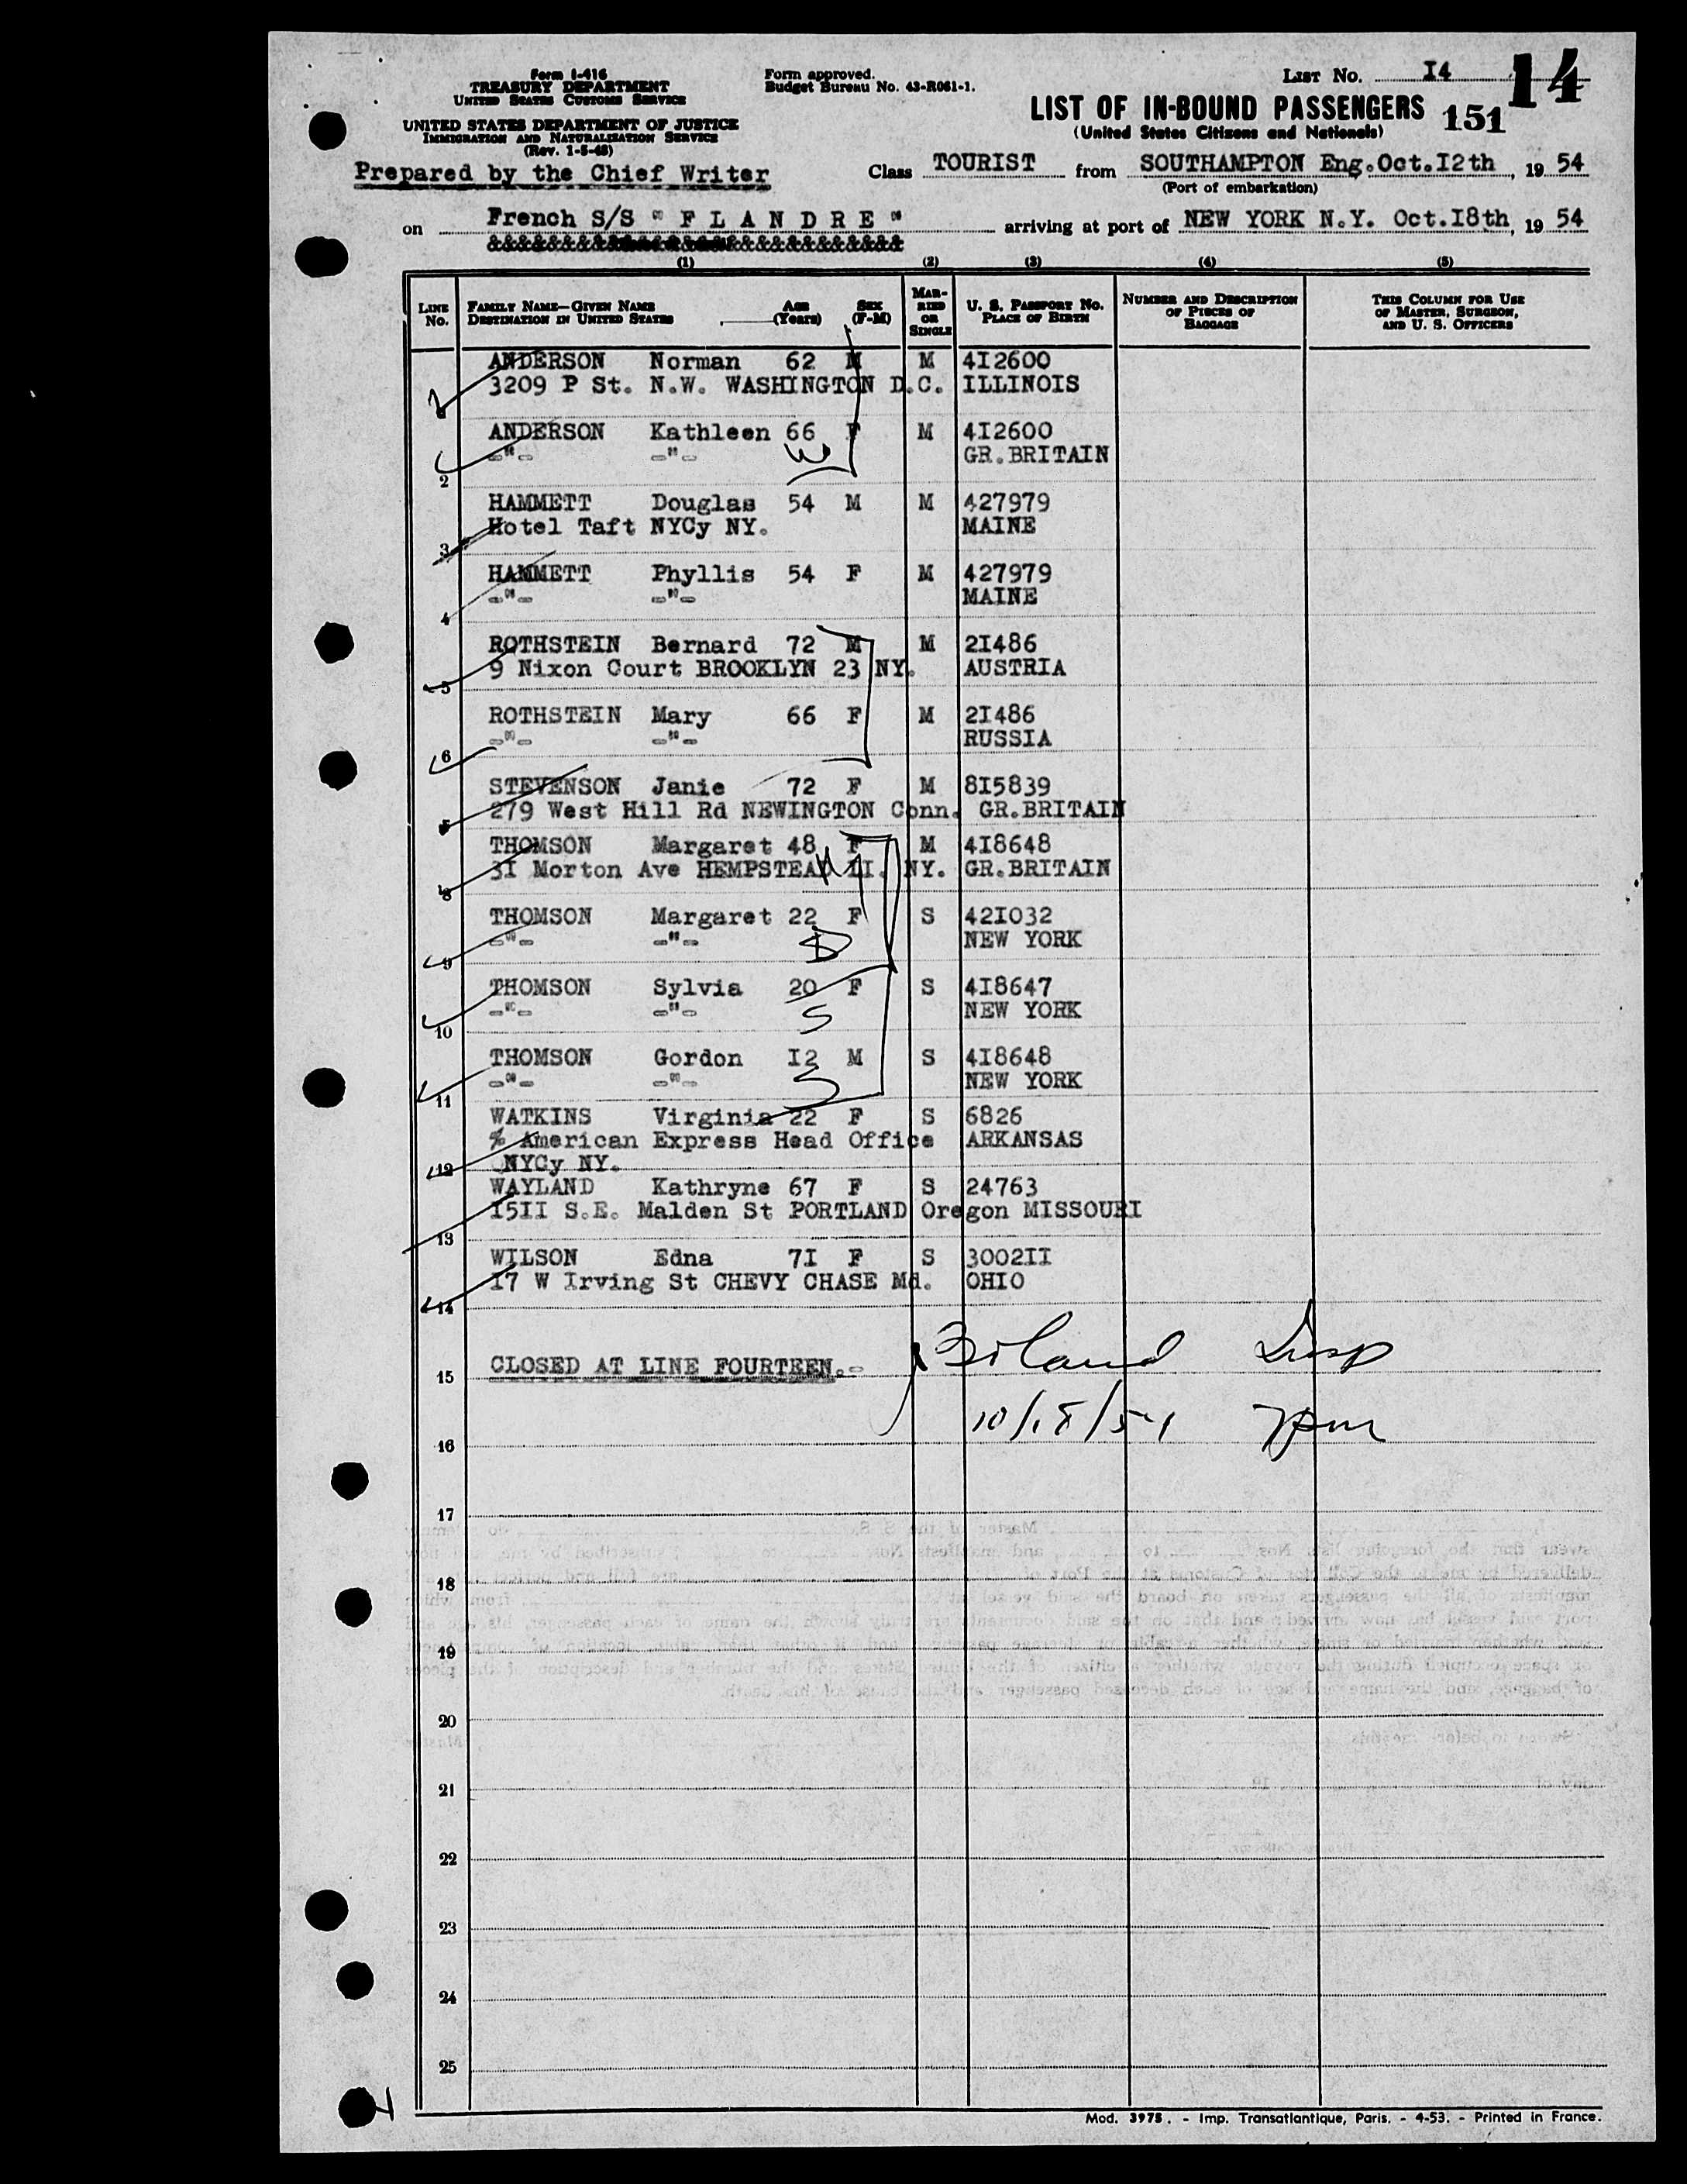 Form I-416
TREASURY DEPARTMENT
UNITED STATES CUSTOMS SERVICE
UNITED STATES DEPARTMENT OF JUSTICE
IMMIGRATION AND NATURALIZATION SERVICE
(Rev. 1-5-48)
Form approved.
Budget Bureau No. 43-R061-1.
LIST No. I4 14
LIST OF IN-BOUND PASSENGERS 151
(United States Citizens and Nationals)
Prepared by the Chief Writer
Class TOURIST from SOUTHAMPTON Eng. Oct.I2th , 19 54
(Port of embarkation)
on French S/S " F L A N D R E " arriving at port of NEW YORK N.Y. Oct.I8th, 19 54
&&&&&&&&&&&&&&&&&&&&&&&&&&&&
(1) (2) (3) (4) (5)
LINE No. FAMILY NAME—GIVEN NAME DESTINATION IN UNITED STATES AGE (Years) SEX (F-M) MARRIED OR SINGLE U. S. PASSPORT NO. PLACE OF BIRTH NUMBER AND DESCRIPTION OF PIECES OF BAGGAGE THIS COLUMN FOR USE OF MASTER, SURGEON, AND U. S. OFFICERS
ANDERSON Norman 62 M M 4I2600
3209 P St. N.W. WASHINGTON D.C. ILLINOIS
ANDERSON Kathleen 66 F M 4I2600
-"- -"- W GR.BRITAIN
2
HAMMETT Douglas 54 M M 427979
Hotel Taft NYCy NY. MAINE
3
HAMMETT Phyllis 54 F M 427979
-"- -"- MAINE
4
ROTHSTEIN Bernard 72 M M 2I486
9 Nixon Court BROOKLYN 23 NY. AUSTRIA
5
ROTHSTEIN Mary 66 F M 2I486
-"- -"- RUSSIA
6
STEVENSON Janie 72 F M 8I5839
279 West Hill Rd NEWINGTON Conn. GR.BRITAIN
THOMSON Margaret 48 F M 4I8648
3I Morton Ave HEMPSTEAD LI. NY. GR.BRITAIN
8
THOMSON Margaret 22 F S 42I032
-"- -"- D NEW YORK
9
THOMSON Sylvia 20 F S 4I8647
-"- -"- S NEW YORK
10
THOMSON Gordon I2 M S 4I8648
-"- -"- S NEW YORK
11
WATKINS Virginia 22 F S 6826
% American Express Head Office ARKANSAS
12 NYCy NY.
WAYLAND Kathryne 67 F S 24763
I5II S.E. Malden St PORTLAND Oregon MISSOURI
13
WILSON Edna 7I F S 3002II
I7 W Irving St CHEVY CHASE Md. OHIO
14
CLOSED AT LINE FOURTEEN.-
15
10/18/54 7pm
16
17
18
19
20
21
22
23
24
25
Mod. 3975. - Imp. Transatlantique, Paris. - 4-53. - Printed in France.